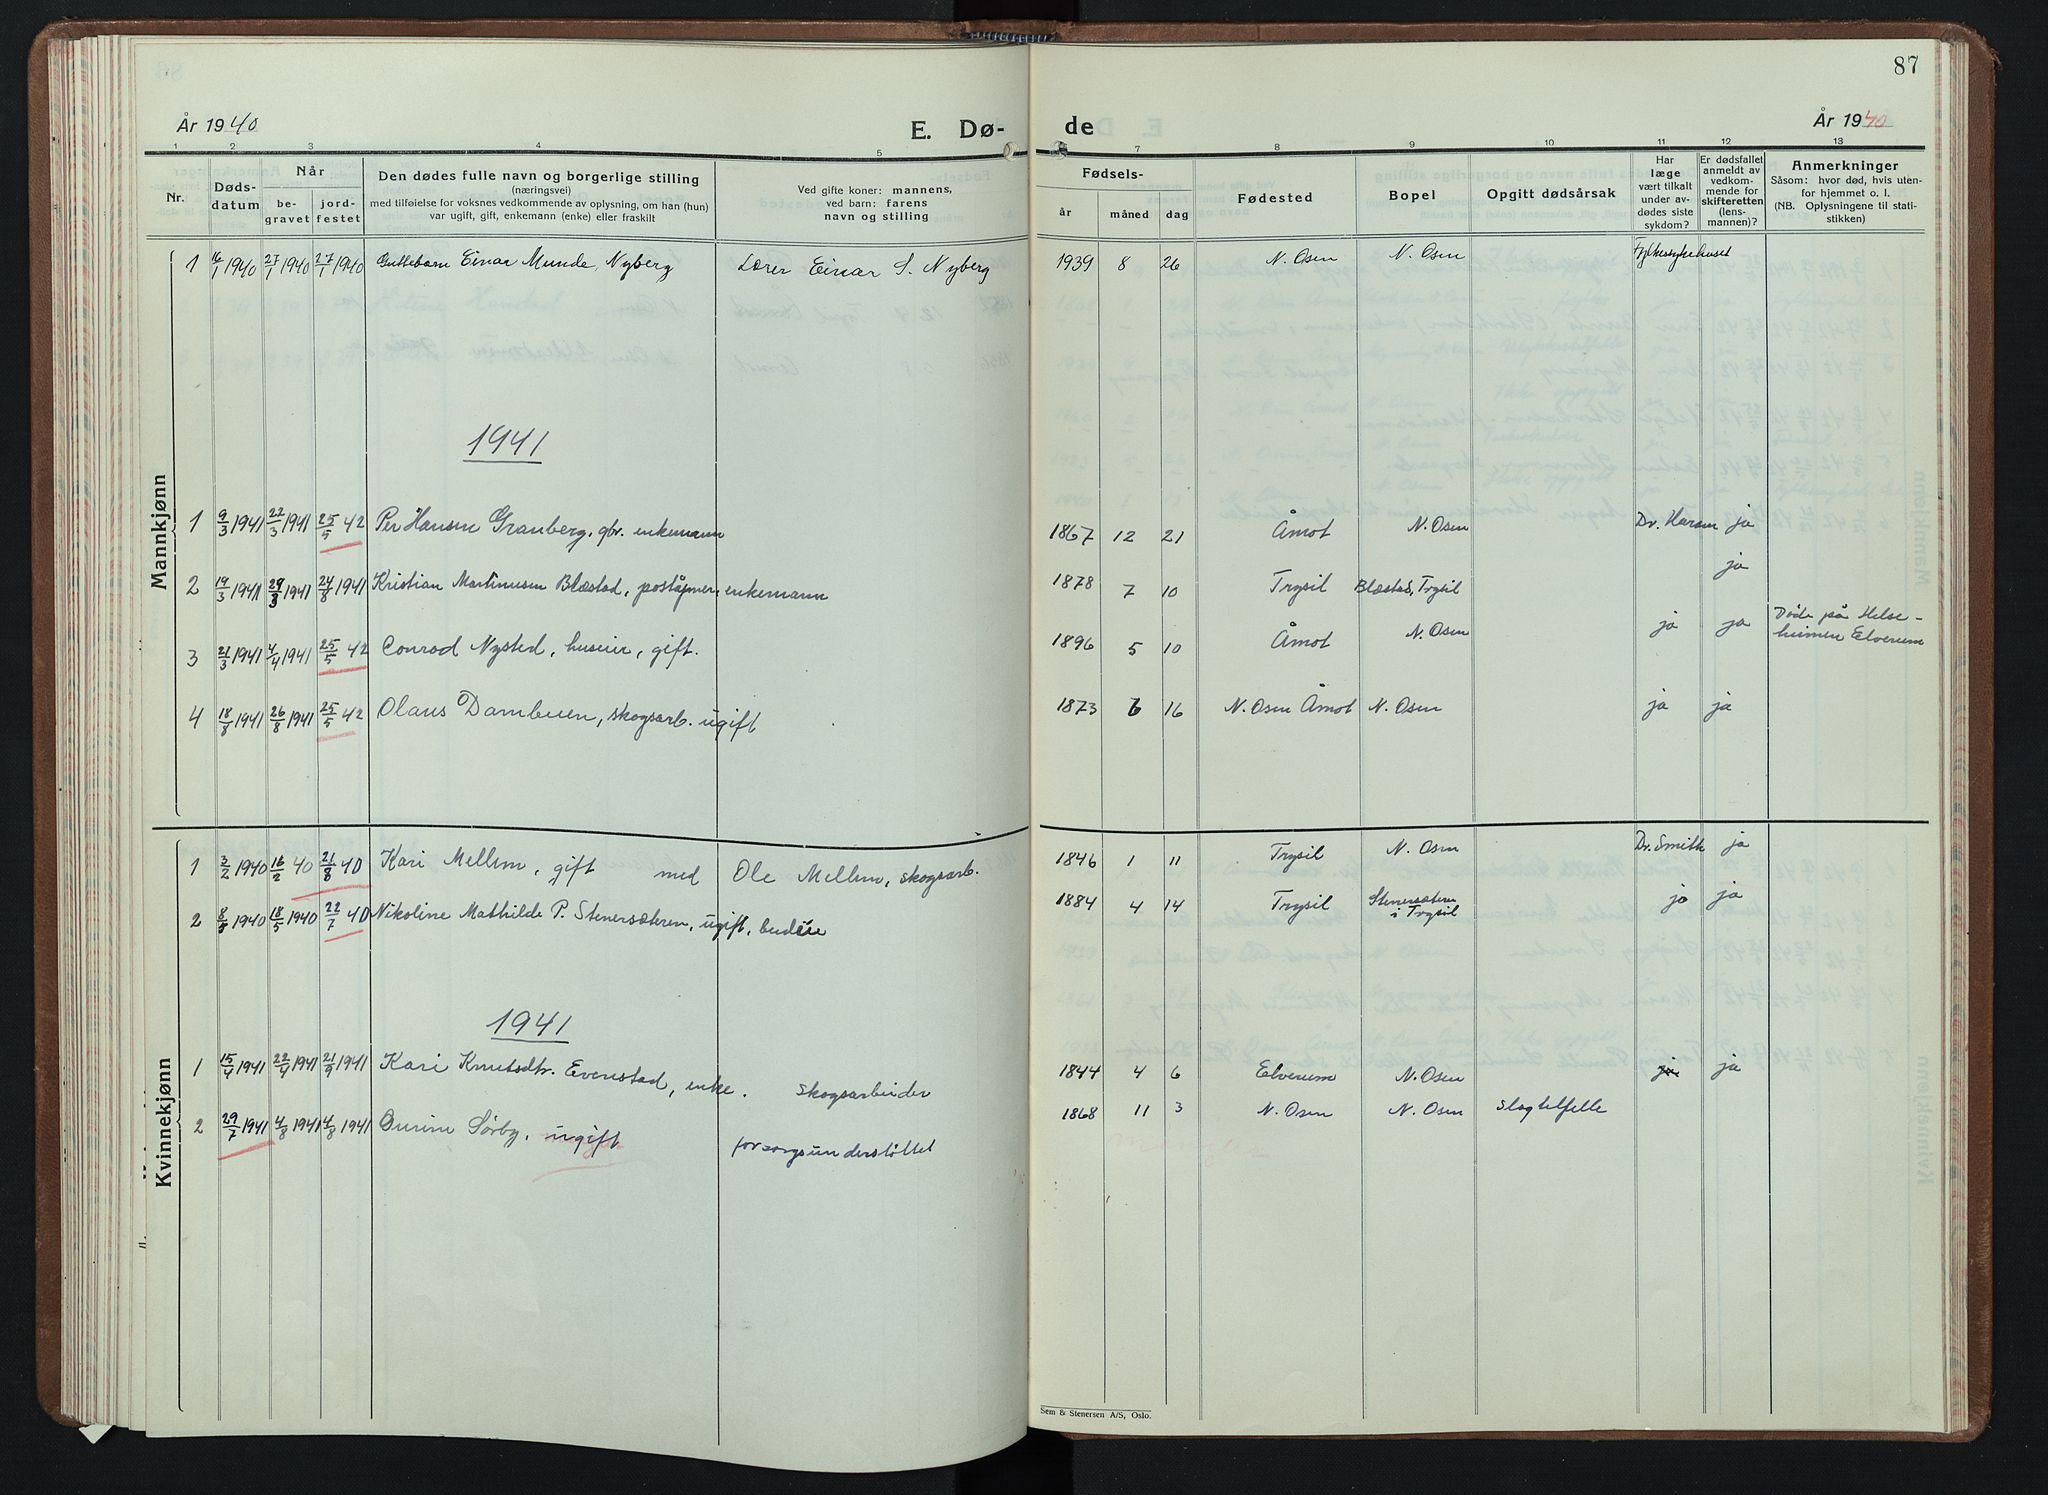 87
År 1940
E. Dø- de
År 1940
1 2 3 4 5 7 8 9 10 11 12 13
Nr.
Døds-
datum
Når
be-
gravet
jord-
festet
Den dødes fulle navn og borgerlige stilling
(næringsvei)
med tilføielse for voksnes vedkommende av oplysning, om han (hun)
var ugift, gift, enkemann (enke) eller fraskilt
Ved gifte koner: mannens,
ved barn: farens
navn og stilling
Fødsels-
år måned dag
Fødested
Bopel
Opgitt dødsårsak
Har
læge
vært tilkalt
under av-
dødes siste
sykdom?
Er dødsfallet
anmeldt av
vedkom-
mende for
skifteretten
(lens-
mannen)?
Anmerkninger
Såsom: hvor død, hvis uten-
for hjemmet o. l.
(NB. Oplysningene til stati-
stikken)
Mannkjønn
1 16/1 1940 27/1 1940 27/1 1940 Guttebarn Einar Munde, Nyberg Lærer Einar S. Nyberg 1939 8 26 N. Osen N. Osen Fylkessykehuset
1941
1 9/3 1941 22/3 1941 25/5 42 Per Hansen Granberg, gbr. enkemann 1867 12 21 Åmot N. Osen Dr. Harsen ja
2 19/3 1941 29/3 1941 24/8 1941 Kristian Martinusen Blæstad, poståpner, enkemann 1878 7 10 Trysil Blæstad, Trysil ja
3 21/3 1941 4/4 1941 25/5 42 Conrad Nysted, huseier, gift. 1896 5 10 Åmot N. Osen ja ja Døde på Helse-
heimen Elverum
4 18/8 1941 26/8 1941 25/5 42 Olaus O Dambuen, skogsarb. ugift 1873 6 16 N. Osen Åmot N. Osen ja ja
Kvinnekjønn
1 3/2 1940 16/2 40 21/8 40 Kari Mellem, gift med Ole Mellem, skogsarb. 1846 1 11 Trysil N. Osen Dr. Smith ja
2 8/5 1940 18/5 1940 22/7 40 Nikoline Mathilde P. Stenersæteren, ugift, budeie 1884 4 14 Trysil Stenersæteren
i Trysil ja ja
1941
1 15/4 1941 22/4 1941 21/9 1941 Kari Knutsdtr. Evenstad, enke. skogsarbeider 1844 4 6 Elverum N. Osen ja ja
2 29/7 1941 4/8 1941 4/8 1941 Sørby, ugift forsorgsunderstøttet 1868 11 3 N. Osen N. Osen slagtilfelle
Sem & Stenersen A/S, Oslo.